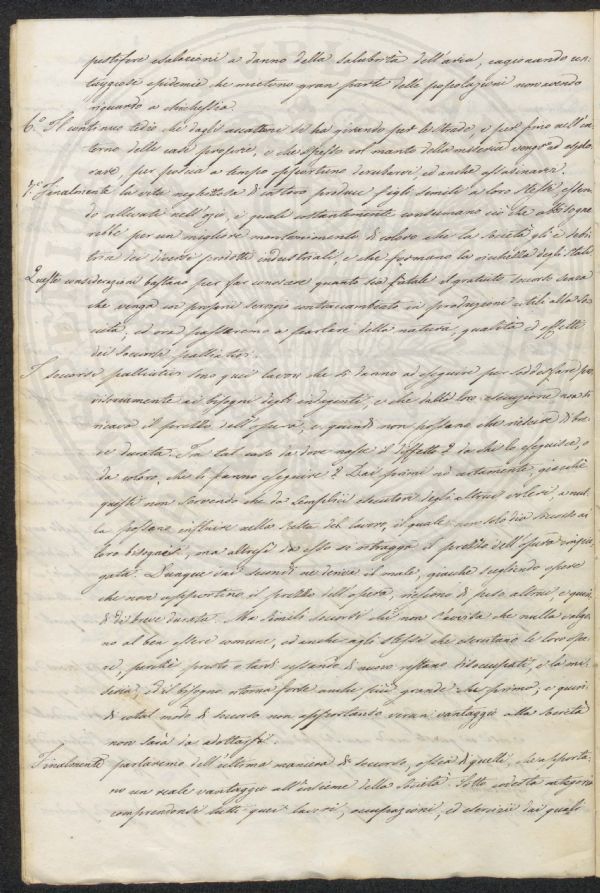 pestifere esalazioni a danno della salubrità dell'aria, cagionando con-
taggiose epidemie che mietono gran parte delle popolazioni non avendo
riguardo a chichessia.
6.° Il continuo tedio che dagli accattoni si ha girando per le strade, e per fino nell'in-
terno delle case proprie, e che spesso col manto della miseria vengono ad esplo-
rare, per poscia a tempo opportuno derubare, ed anche assassinare.
7.° Finalmente la vita neghittosa di costoro produce figli simili a loro stessi essen-
do allevati nell'ozio, e quali costantemente consumano ciò che abbisogne-
rebbe per un migliore mantenimento di coloro che la società gli è debi-
trice dei diversi prodotti industriali, e che formano la ricchezza degli Stati.
Queste considerazioni bastano per far conoscere quanto sia fatale il gratuito soccorso senza
che venga un proprio servigio contraccambiato in produzione utile alla So-
cietà, ed ora passeremo a parlare della natura, qualità ed effetti
dei soccorsi palliativi.
I soccorsi palliativi sono quei lavori che si danno ad eseguire per soddisfare prov-
visoriamente ai bisogni degli indigenti, e che dalla loro esecuzione non si
ricava il prezzo dell'opera, e quindi non possono che riescire di bre-
ve durata. In tal caso da dove nasce il difetto? da chi lo eseguisce, o
da coloro, che li fanno eseguire? Dai primi no certamente, giacchè
questi non servendo che da semplici esecutori degli altrui voleri, a nul-
la possono influire nella scelta del lavoro, il quale non solo dia soccorso ai
loro bisogni, ma altresì da esso si ritragga il prezzo dell'opera impie-
gata. Dunque dai secondi ne deriva il male, giacchè scegliendo opere
che non apportino il prezzo dell'opera, riescono di peso altrui e quin-
di di breve durata. Ma simili soccorsi chi non s'avvisa che nulla valgo-
no al ben essere comune, ed anche agli stessi che esercitano le loro ope-
re, perchè presto o tardi cessando di nuovo restano disoccupati, e la mi-
seria, ed il bisogno ritorna forse anche più grande che prima, e quin-
di cotal modo di soccorso non apportando verun vantaggio alla Società
non sarà da adottarsi.
Finalmente parlaremo dell'ultima maniera di soccorso, ossia di quelli, che apporta-
no un reale vantaggio all'insieme della Società. Sotto codesta categoria
comprendonsi tutti quei lavori, occupazioni, ed esercizi dai quali